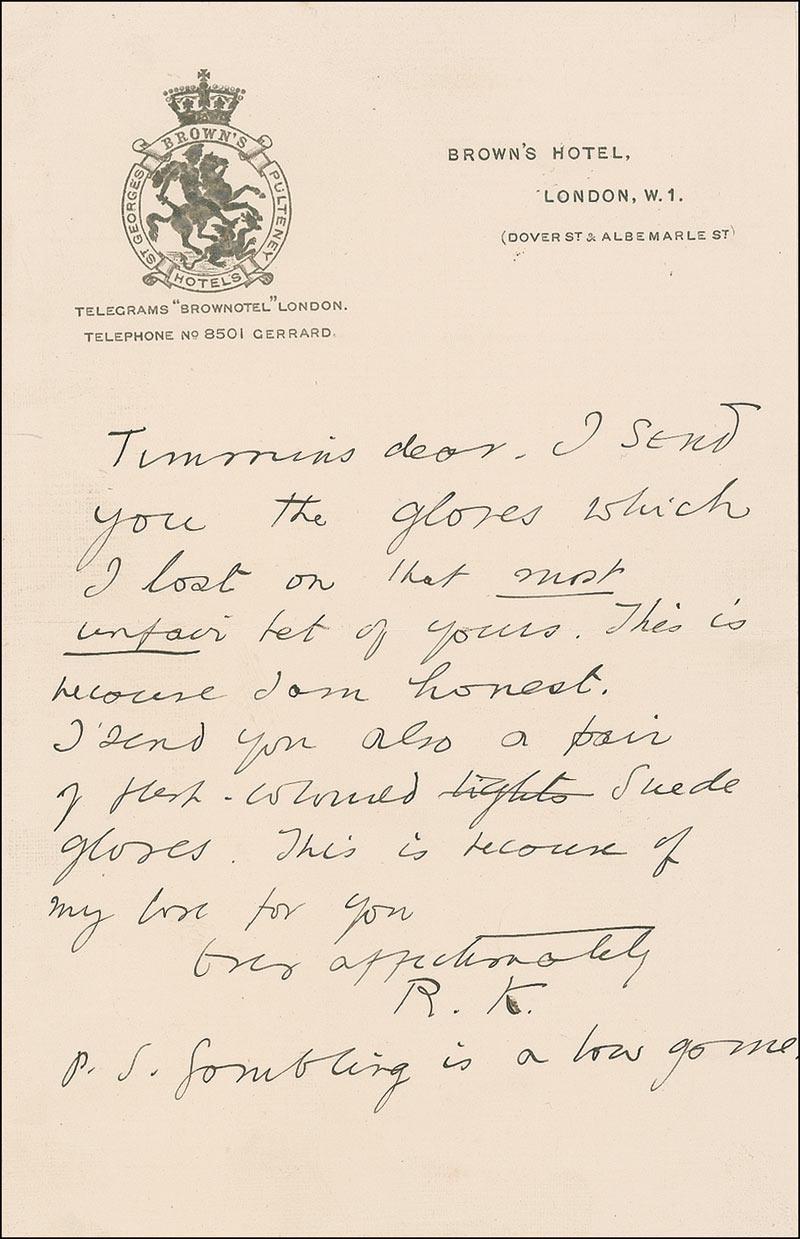 BROWN'S
ST GEORGES
PULTENEY
HOTELS
TELEGRAMS "BROWNOTEL" LONDON.
TELEPHONE No 8501 GERRARD.
BROWN'S HOTEL,
LONDON, W.1.
(DOVER ST & ALBEMARLE ST)
Timmins dear. I send
you the gloves which
I lost on that most
unfair bet of yours. This is
because I am honest.
I send you also a pair
of flesh-coloured tights Suede
gloves. This is because of
my love for you
Ever affectionately
R. K.
P. S. Gambling is a low game.